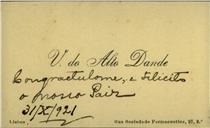 V. do Alto Dande
Congractulome, e felicito
o nosso Paiz
31/X/921
Lisboa Rua Sociedade Farmaceutica, 27, 2.º